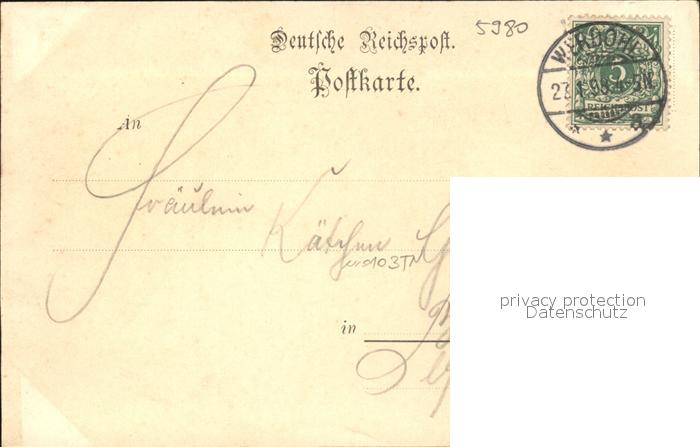 5980
Deutsche Reichspost.
Postkarte.
WERDOHL
27.1.98.4-5N.
5
REICHSPOST
An
Fräulein
Kätchen
in
privacy protection
Datenschutz